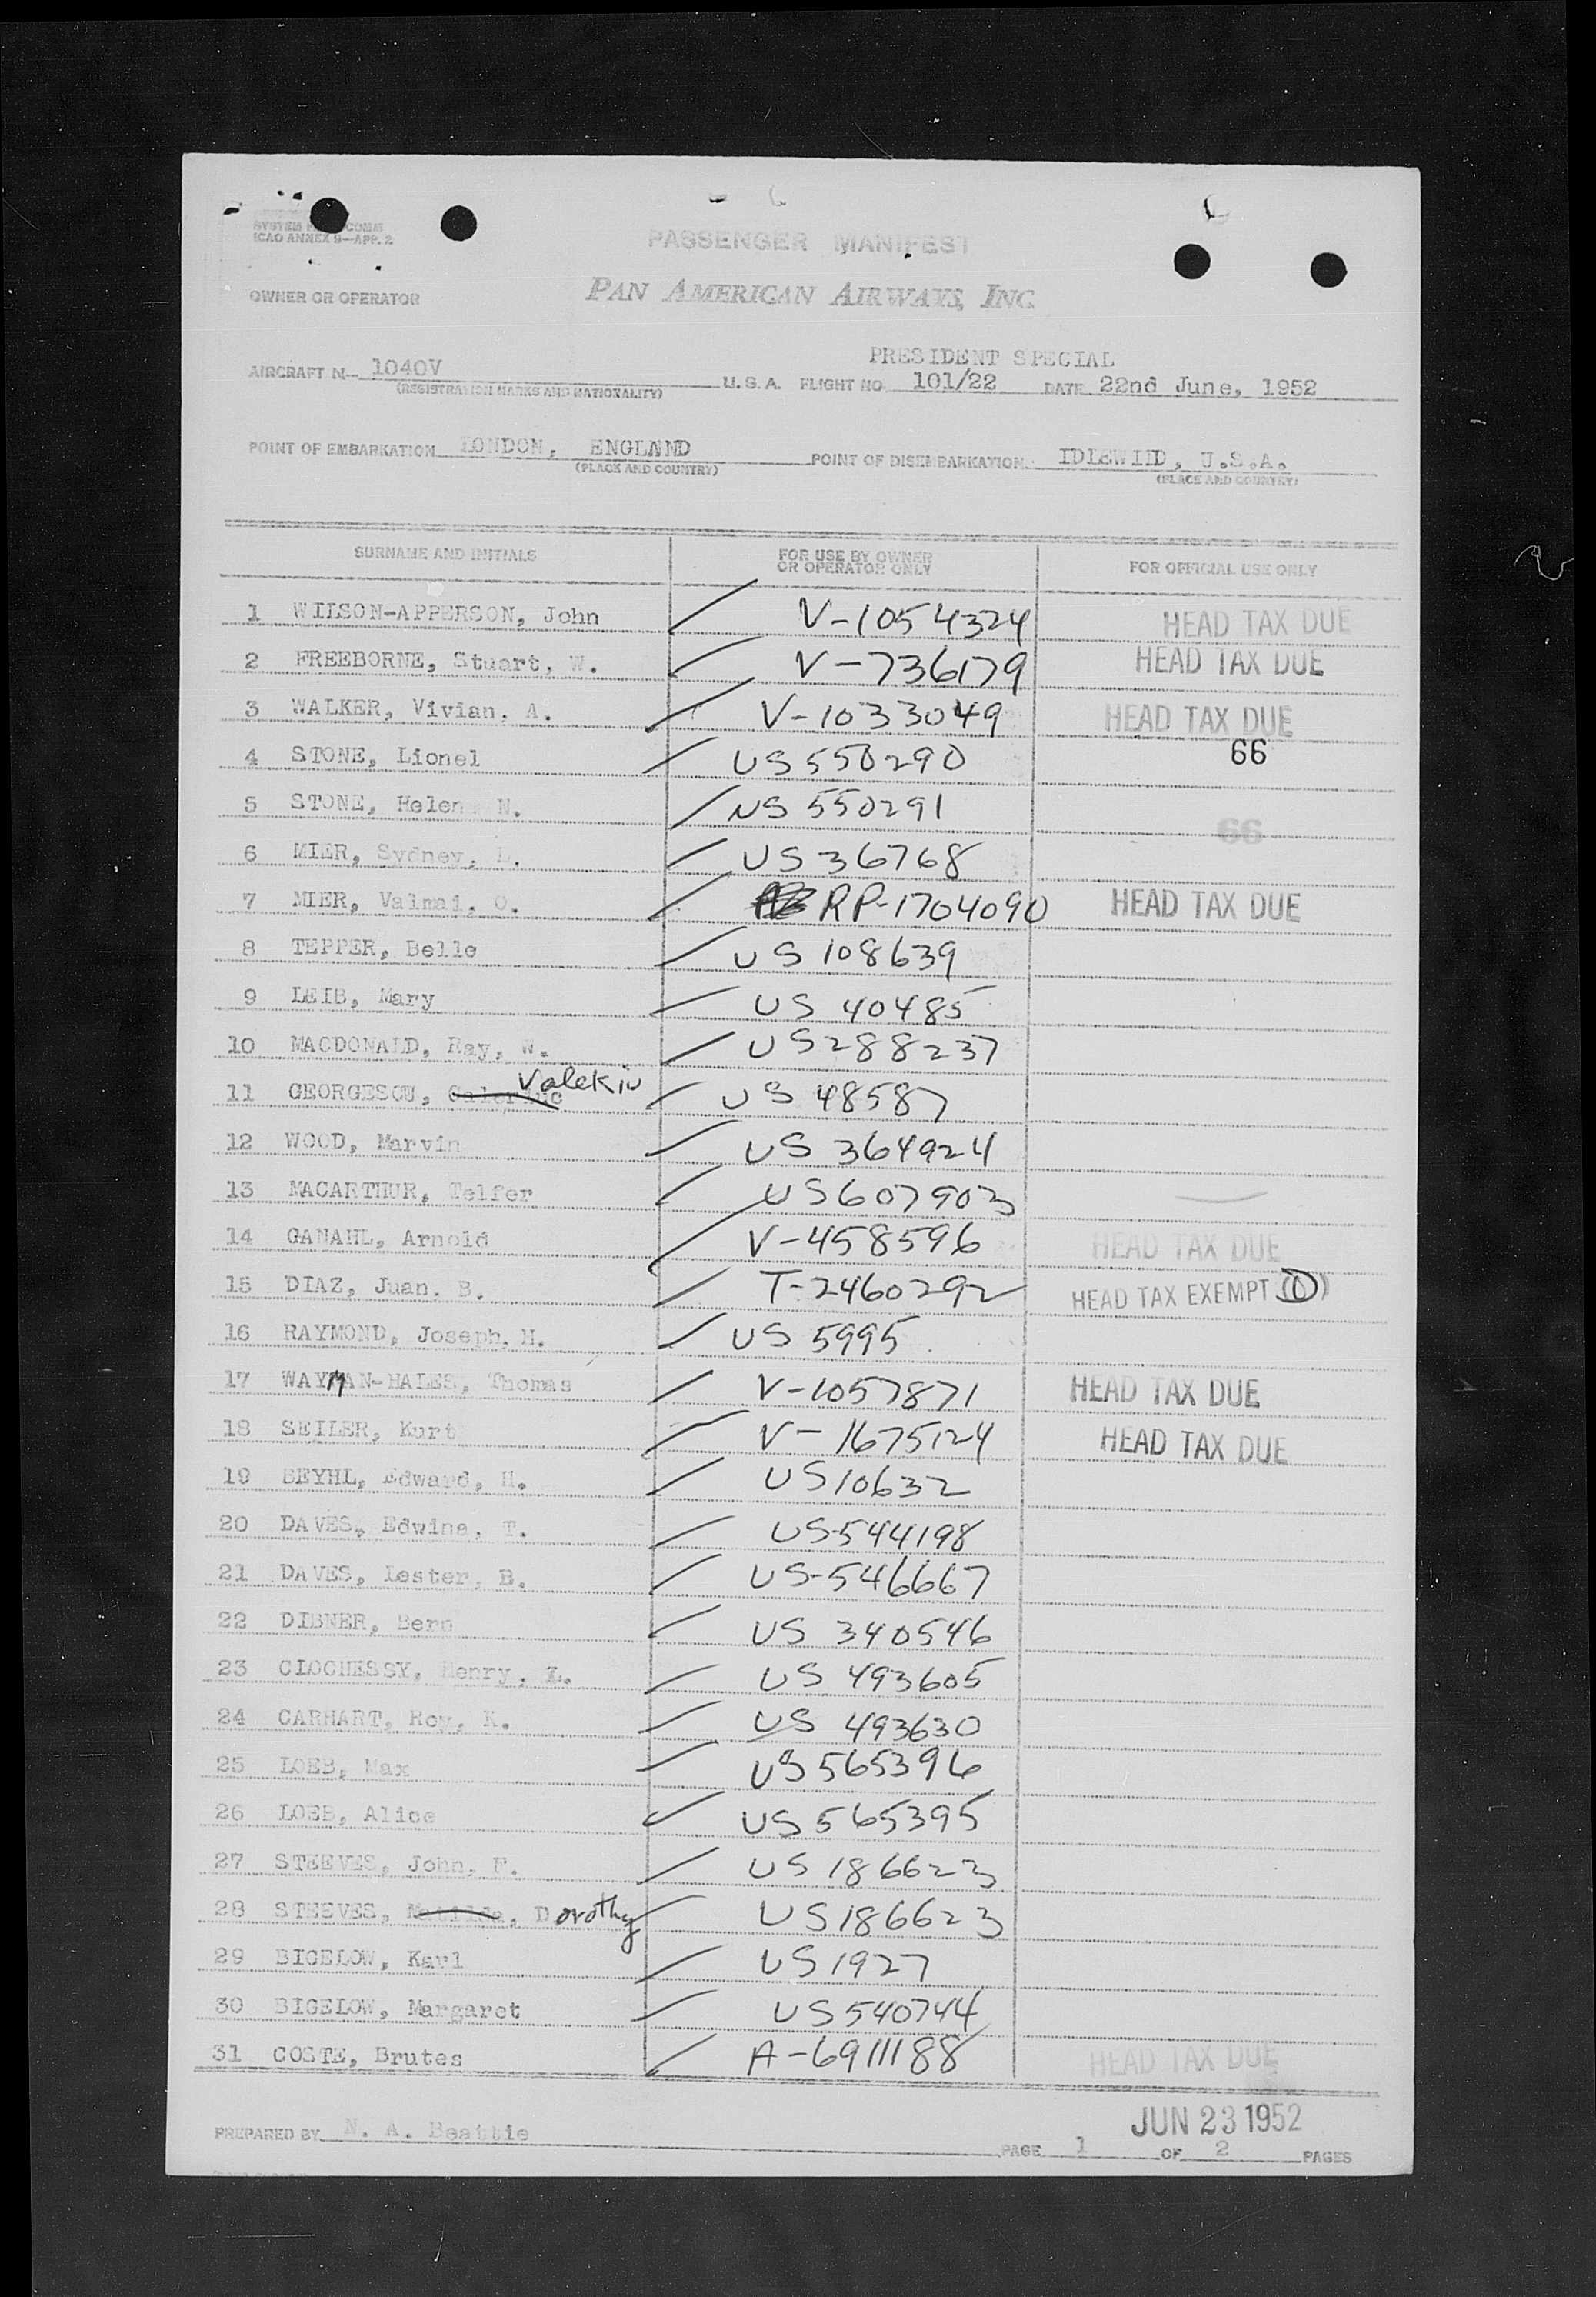 SYSTEM COMM
ICAO ANNEX 9—APP. 2
PASSENGER MANIFEST
OWNER OR OPERATOR PAN AMERICAN AIRWAYS, INC.
PRESIDENT SPECIAL
AIRCRAFT N— 1040V U.S.A. FLIGHT NO. 101/22 DATE 22nd June, 1952
(REGISTRATION MARKS AND NATIONALITY)
POINT OF EMBARKATION LONDON, ENGLAND POINT OF DISEMBARKATION IDLEWILD, U.S.A.
(PLACE AND COUNTRY) (PLACE AND COUNTRY)
SURNAME AND INITIALS FOR USE BY OWNER OR OPERATOR ONLY FOR OFFICIAL USE ONLY
1 WILSON-APPERSON, John V-1054324 HEAD TAX DUE
2 FREEBORNE, Stuart, W. V-736179 HEAD TAX DUE
3 WALKER, Vivian, A. V-1033049 HEAD TAX DUE
4 STONE, Lionel US 550290 66
5 STONE, Helen N. US 550291 66
6 MIER, Sydney, L. US 36768
7 MIER, Valmai, O. RP-1704090 HEAD TAX DUE
8 TEPPER, Belle US 108639
9 LEIB, Mary US 40485
10 MACDONALD, Ray, W. US 288237
11 GEORGESCU, Valekiu US 48587
12 WOOD, Marvin US 364924
13 MACARTHUR, Telfer US 607903
14 GANAHL, Arnold V-458596 HEAD TAX DUE
15 DIAZ, Juan. B. T-2460292 HEAD TAX EXEMPT (1)
16 RAYMOND, Joseph. H. US 5995
17 WAYMAN-HALES, Thomas V-1057871 HEAD TAX DUE
18 SEILER, Kurt V-1675124 HEAD TAX DUE
19 BEYHL, Edward, H. US 10632
20 DAVES, Edwina, T. US-544198
21 DAVES, Lester, B. US-546667
22 DIBNER, Bern US 340546
23 CLOCHESSY, Henry, L. US 493605
24 CARHART, Roy, K. US 493630
25 LOEB, Max US 565396
26 LOEB, Alice US 565395
27 STEEVES, John, F. US 186623
28 STEEVES, Matilda, Dorothy US 186623
29 BIGELOW, Karl US 1927
30 BIGELOW, Margaret US 540744
31 COSTE, Brutes A-6911188 HEAD TAX DUE
JUN 23 1952
PREPARED BY N. A. Beattie PAGE 1 OF 2 PAGES